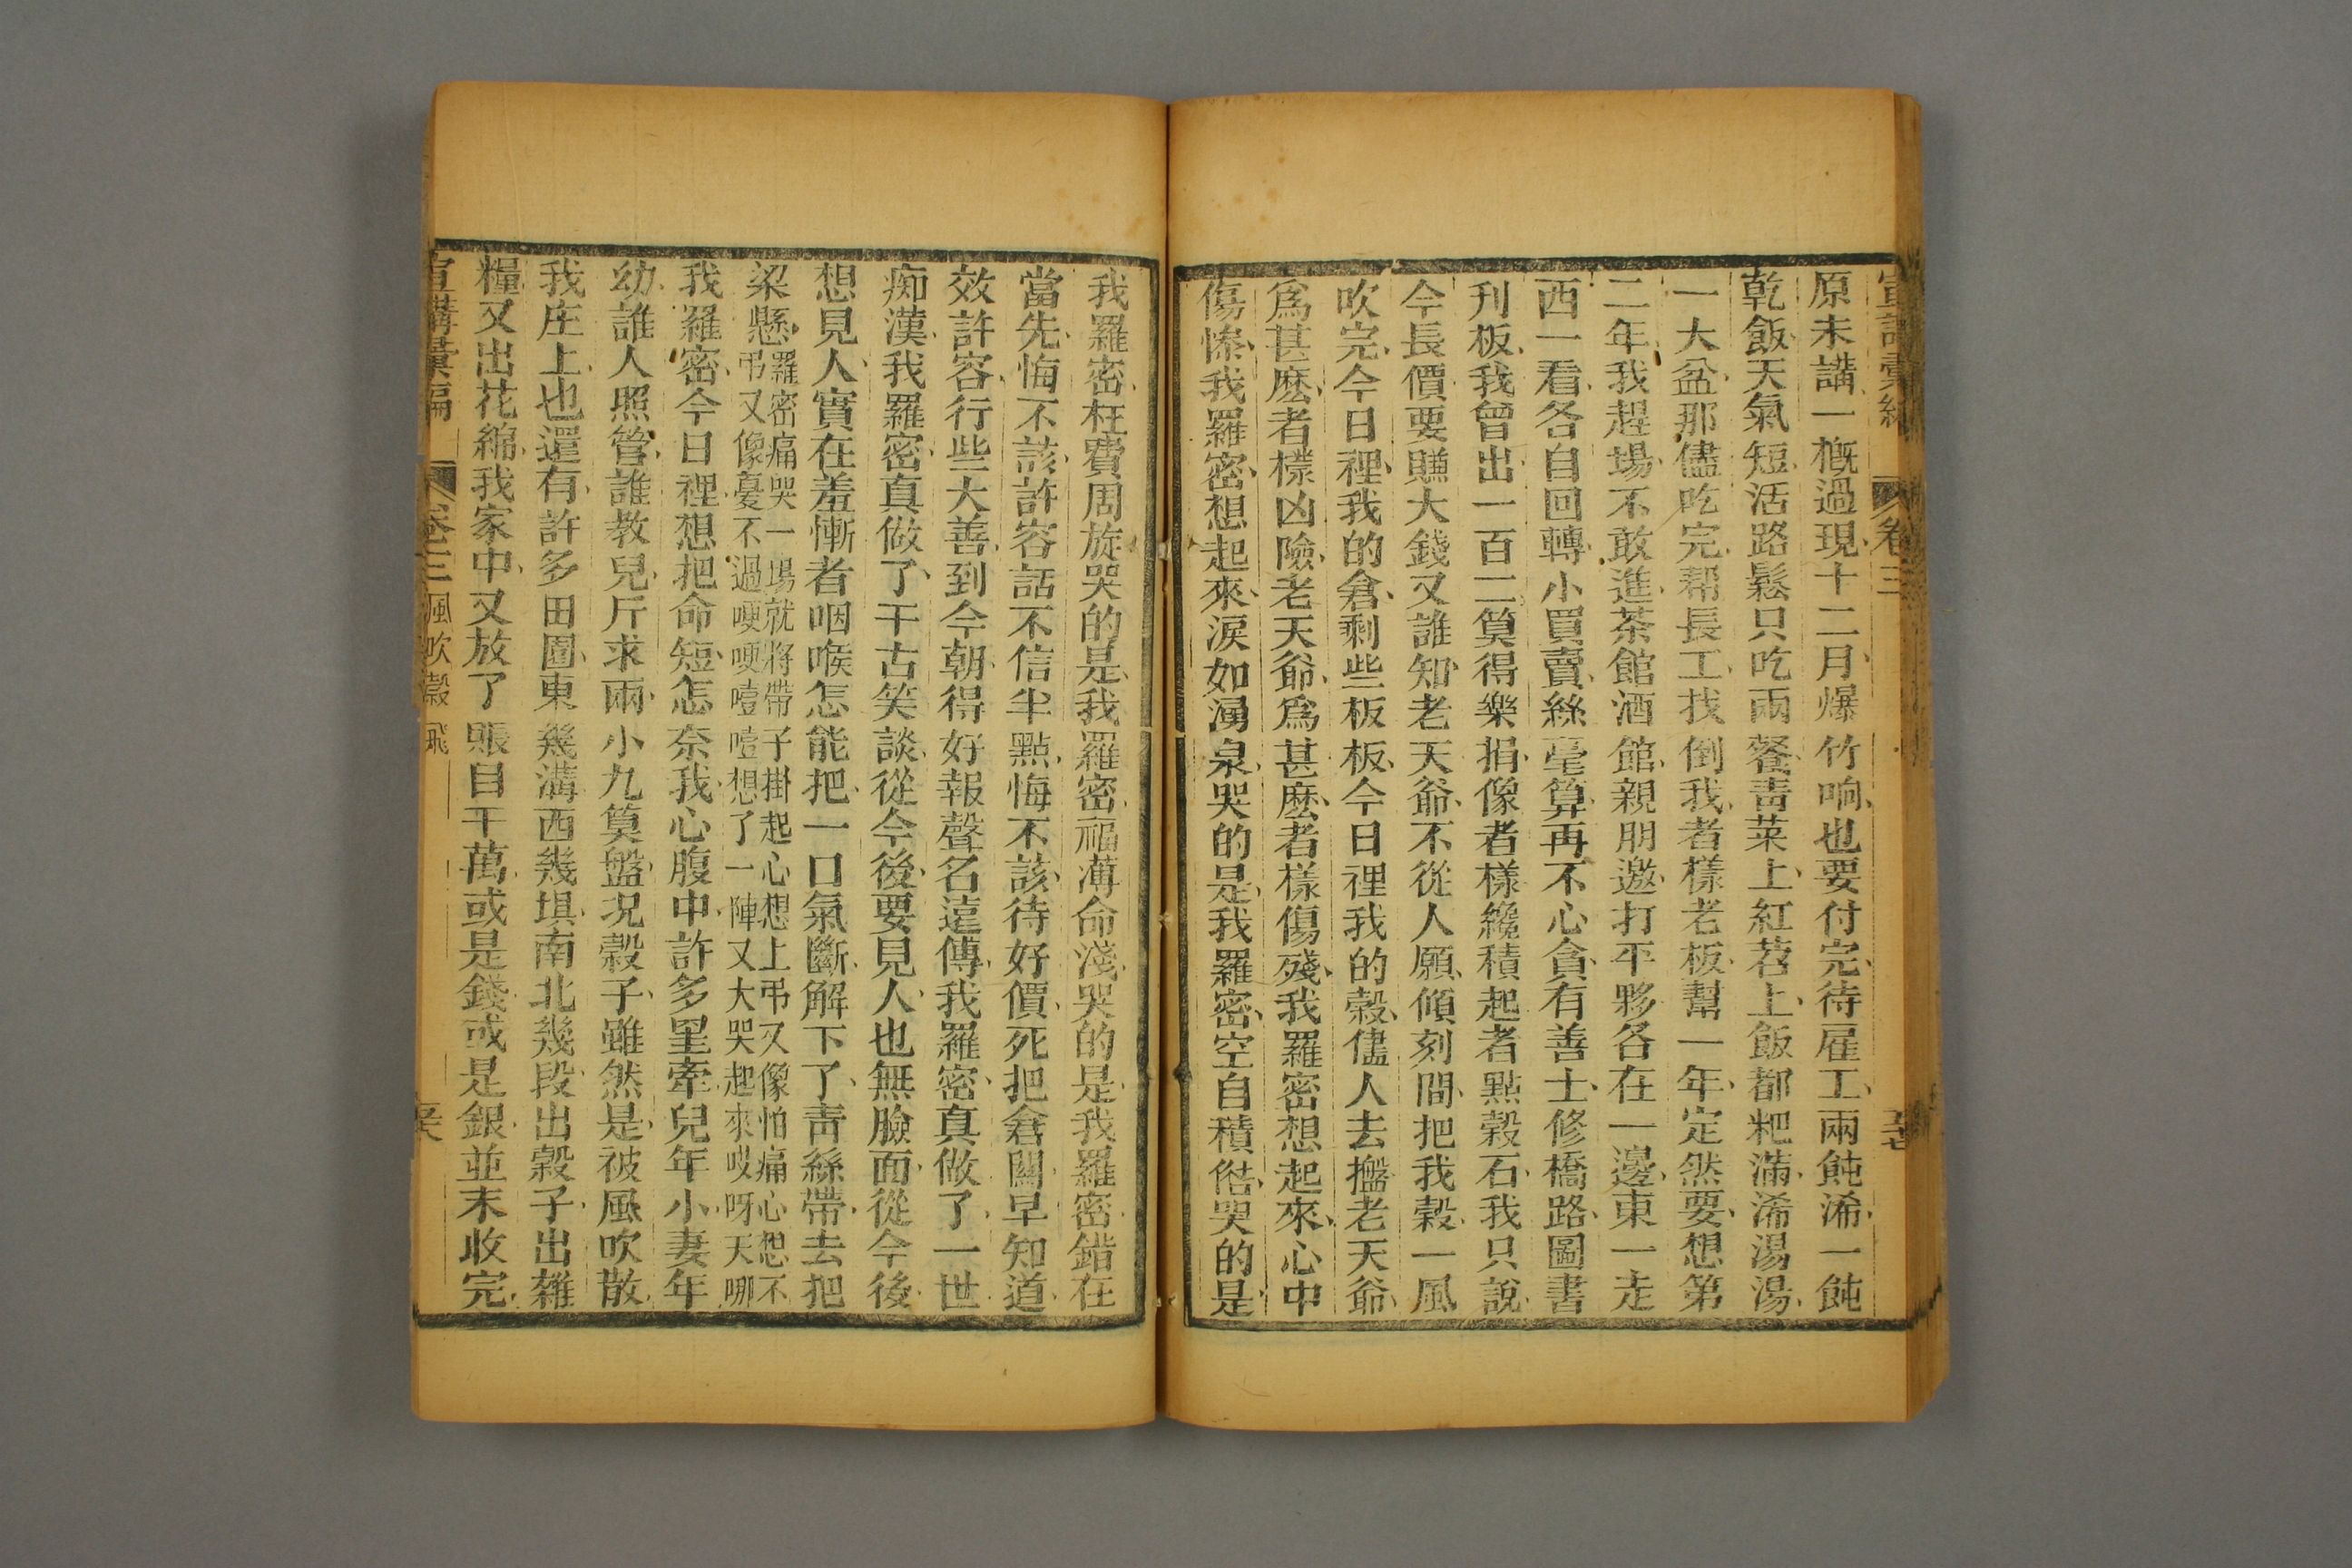 宣講彙編 卷三
原未講一概過現十二月爆竹响也要付完待雇工兩飩浠一飩
乾飯天氣短活路鬆只吃兩餐青菜上紅苕上飯都粑滿浠湯湯
一大盆那儘吃完帮長工找倒我者樣老板幫一年定然要想第
二年我趕場不敢進茶館酒館親朋邀打平夥各在一邊東一走
西一看各自回轉小買賣絲毫算再不心貪有善士修橋路圖書
刊板我曾出一百二筭得樂捐像者樣纔積起者點穀石我只說
今長價要賺大錢又誰知老天爺不從人願傾刻間把我穀一風
吹完今日裡我的倉剩些板板今日裡我的穀儘人去搵老天爺
爲甚麽者樣凶險老天爺爲甚麽者樣傷殘我羅密想起來心中
傷慘我羅密想起來淚如湧泉哭的是我羅密空自積儹哭的是
我羅密枉費周旋哭的是我羅密福薄命淺哭的是我羅密錯在
當先悔不該許容話不信半點悔不該待好價死把倉關早知道
效許容行些大善到今朝得好報聲名遠傳我羅密真做了一世
痴漢我羅密真做了千古笑談從今後要見人也無臉面從今後
想見人實在羞慚者咽喉怎能把一口氣斷解下了靑絲帶去把
梁懸羅密痛哭一場就將帶子掛起心想上弔又像怕痛心想不
弔又像憂不過哽哽噎噎想了一陣又大哭起來哎呀天哪
我羅密今日裡想把命短怎奈我心腹中許多罣牽兒年小妻年
幼誰人照管誰教兒斤求兩小九筭盤況穀子雖然是被風吹散
我庄上也還有許多田園東幾溝西幾塤南北幾段出穀子出雜
糧又出花綿我家中又放了賬目千萬或是錢或是銀並末收完
宣講彙編 卷三 風吹穀飛